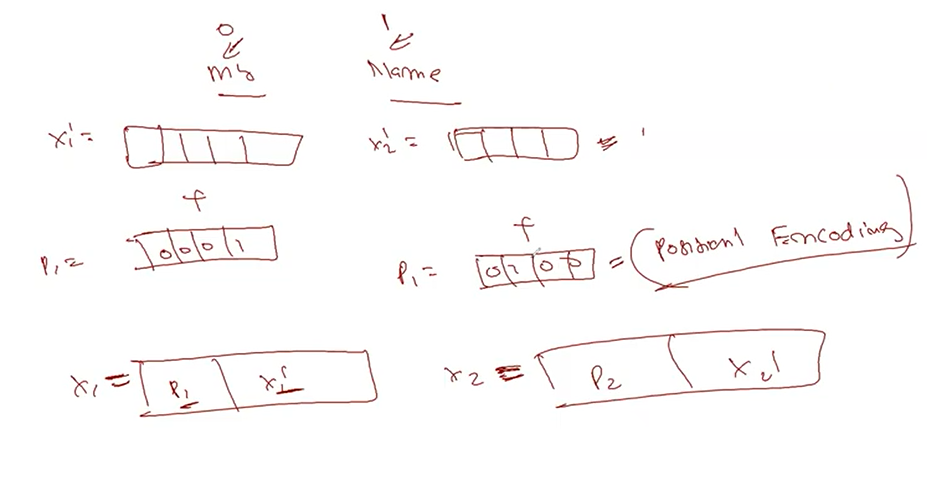 0 1
my Name
x₁' = x₂' =
f f
P₁ = 0 0 0 1 P₁ = 0 1 0 0 = (Positional Encoding)
x₁ = P₁ x₁' x₂ = P₂ x₂'